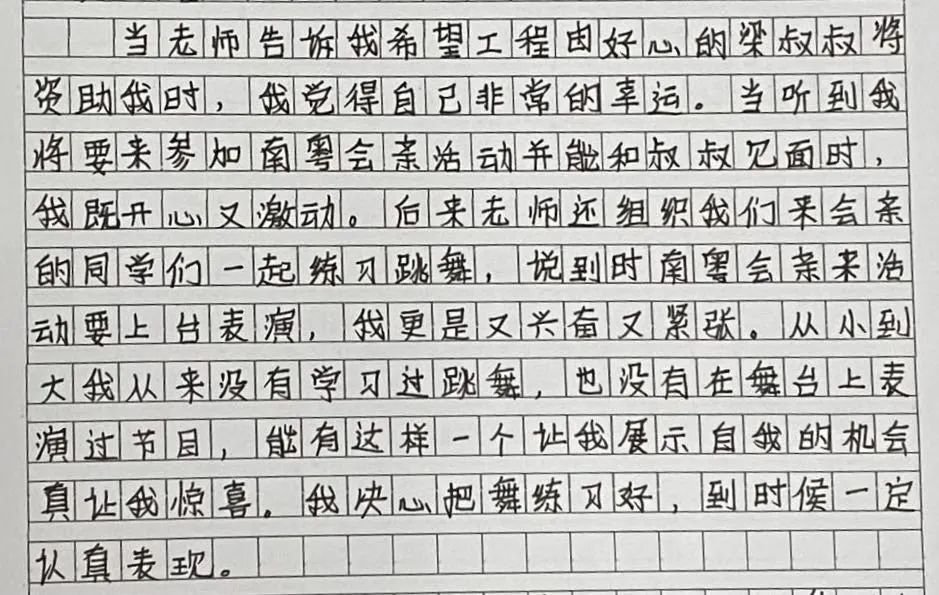 当老师告诉我希望工程由好心的梁叔叔将
资助我时，我觉得自己非常的幸运。当听到我
将要来参加南粤会亲活动并能和叔叔见面时，
我既开心又激动。后来老师还组织我们来会亲
的同学们一起练习跳舞，说到时南粤会亲来活
动要上台表演，我更是又兴奋又紧张。从小到
大我从来没有学习过跳舞，也没有在舞台上表
演过节目，能有这样一个让我展示自我的机会
真让我惊喜。我决心把舞练习好，到时候一定
认真表现。